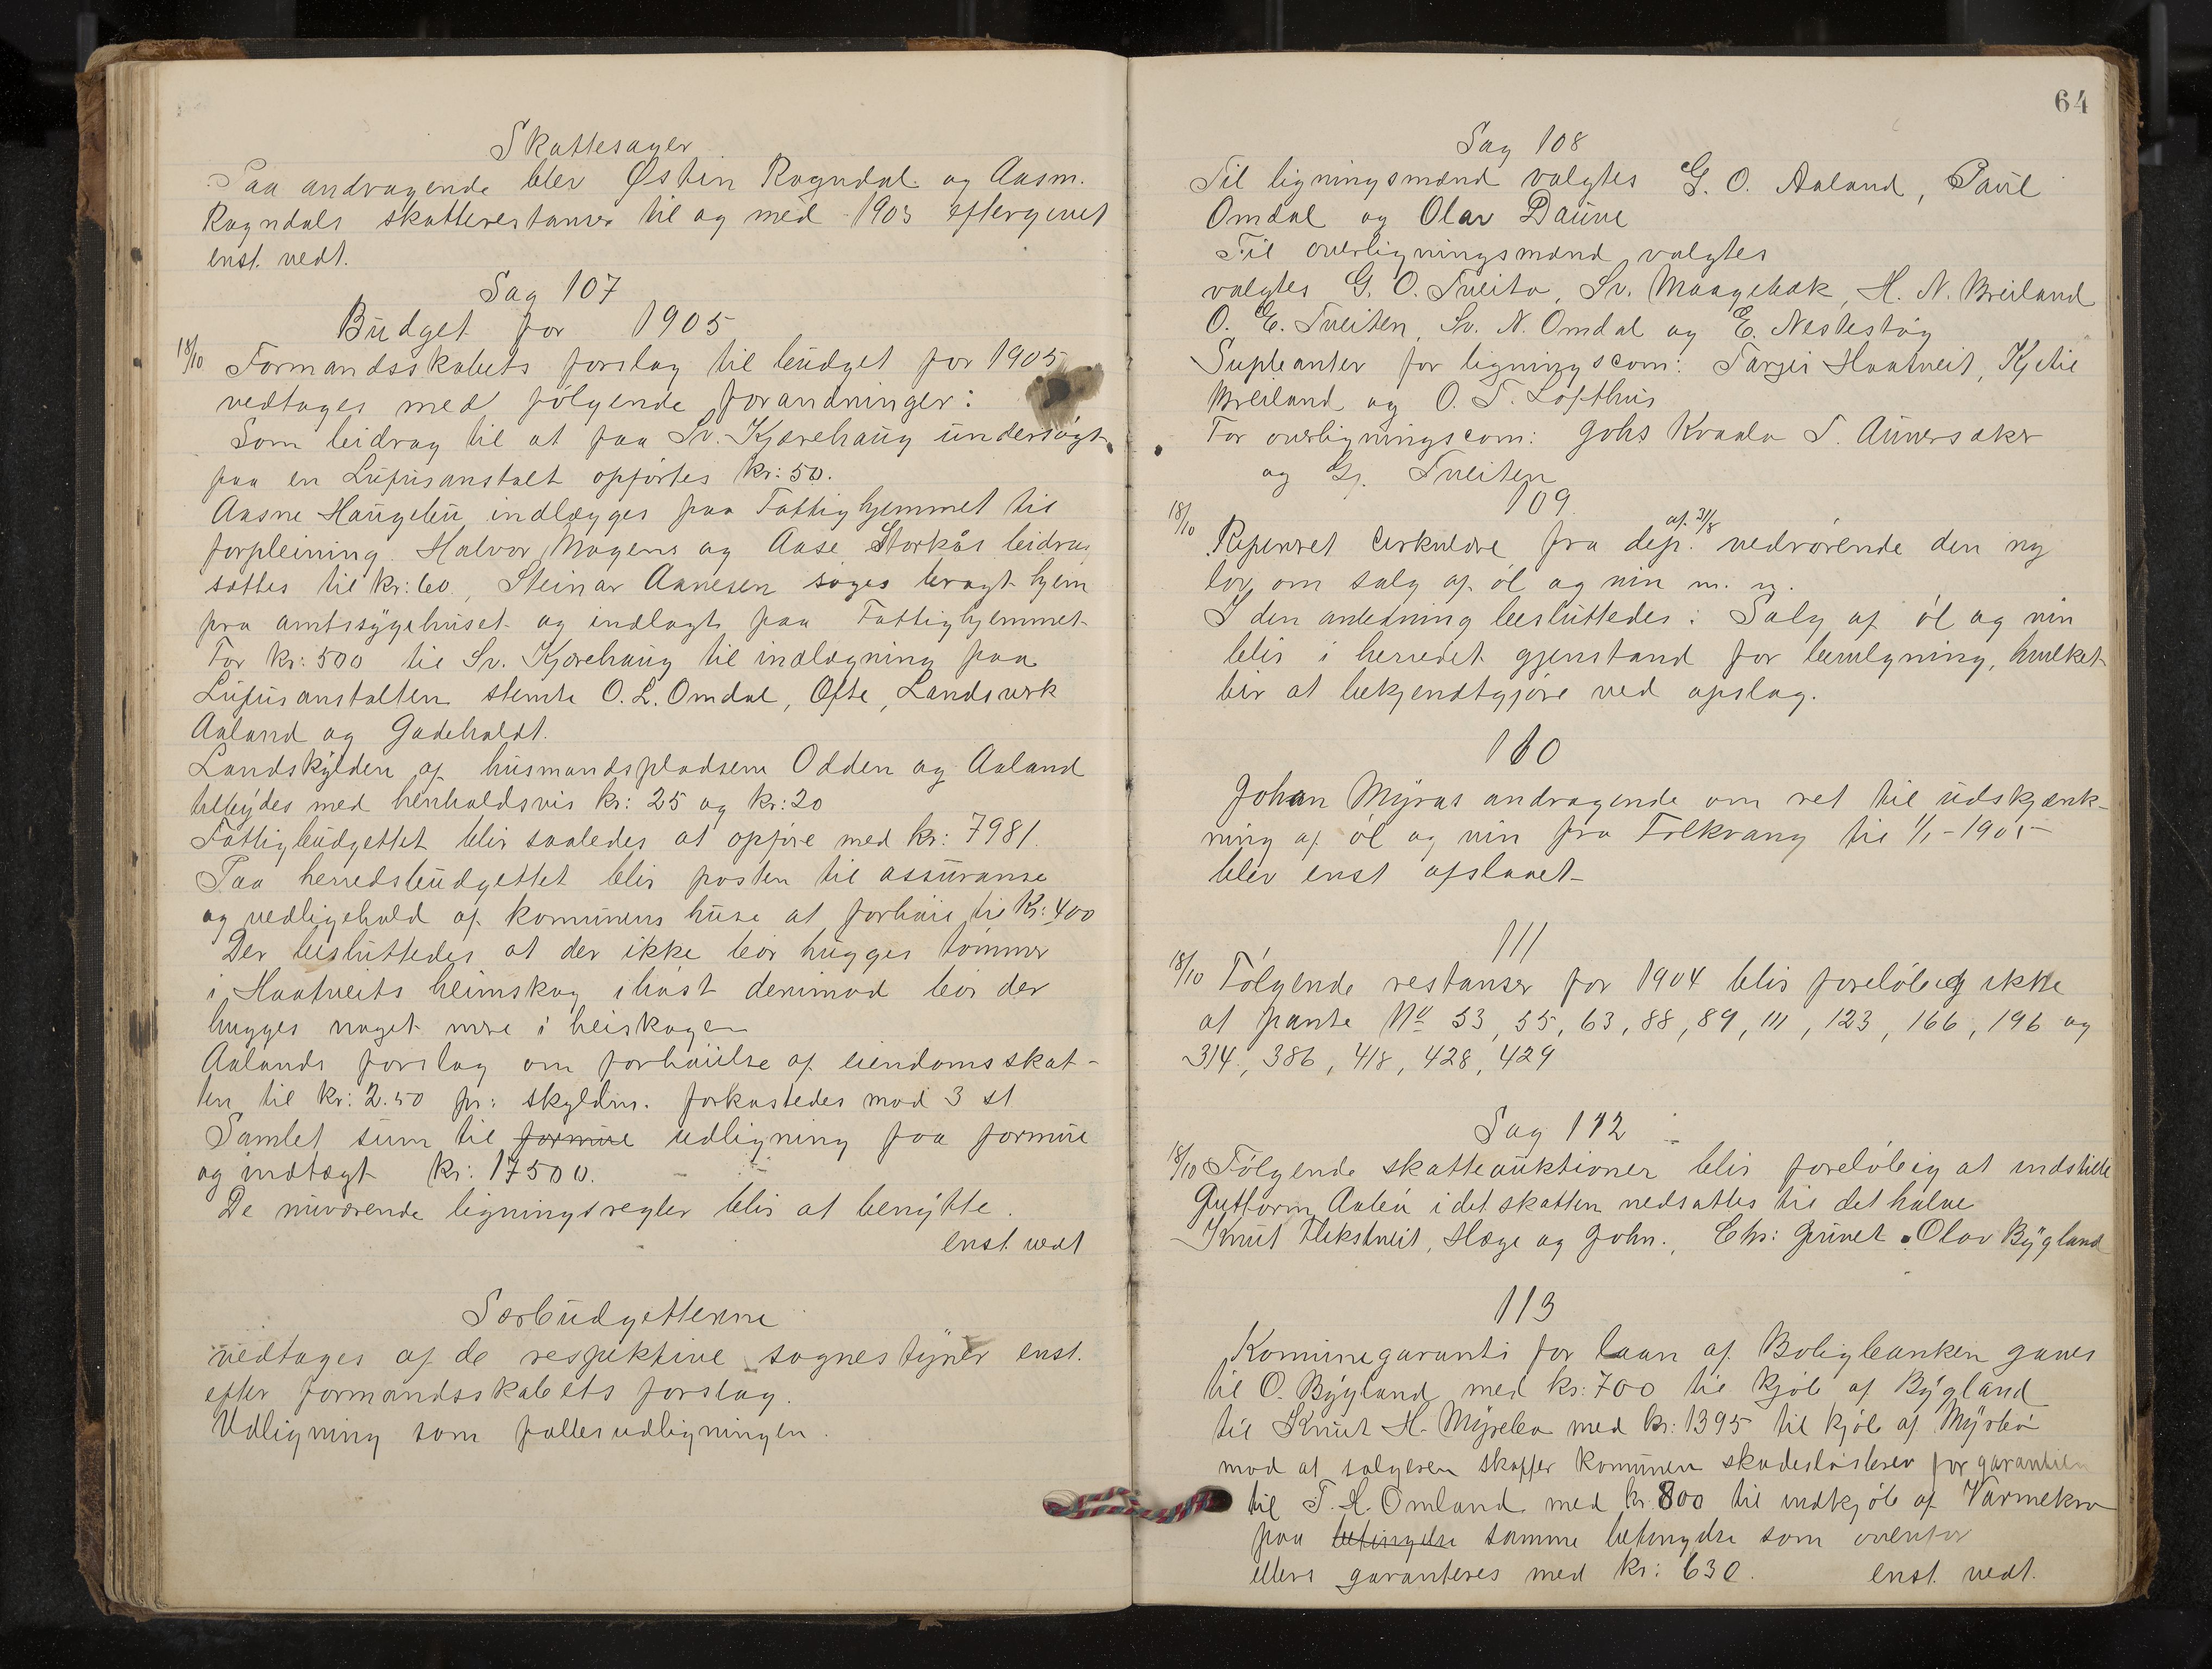 Skattesager
Paa andragende blev Østen Rogndal og Aasm.
Rogndals skatterestanser til og med 1903 eftergivet
enst. vedt.
Sag 107
Budget for 1905
18/10 Formandsskabets forslag til budget for 1905
vedtages med følgende forandringer:
Som bidrag til at faa Sv. Kjærehaug undersøgt
paa en Lupusanstalt opførtes kr: 50.
Aasne Haugebu indlægges paa Fattighjemmet til
forpleining. Halvor Mogens og Aase Storkås bidrag
sættes til kr: 60., Steinar Aanesen søges bragt hjem
fra amtssygehuset og indlagt paa Fattighjemmet
For kr: 500 til Sv. Kjærehaug til indlægning paa
Lupusanstalten stemte O. L. Omdal, Ofte, Landsverk
Aaland og Gadeholdt.
Landskylden af husmandspladsene Odden og Aaland
med henholdsvis kr: 25 og kr: 20
Fattigbudgettet blir saaledes at opføre med kr: 7981.
Paa herredsbudgettet blir posten til assuranse
og vedligehold af komunens huse at forhøie til Kr: 400
Der besluttedes at der ikke bør hugges tømmer
i Haatveits heimskog i høst derimod bør der
hugges noget mere i heiskogen
Aalands forslag om forhøielse af eiendomsskat-
ten til kr: 2.50 pr: skyldm. forkastedes mod 3 st
Samlet sum til formue udligning paa formue
og indtægt kr: 17500.
De nuværende ligningsregler blir at benytte.
enst. vedt
Særbudgetterne
vedtages af de respektive sognestyrer enst.
efter formandsskabets forslag.
Udligning som fællesudligningen.
64
Sag 108
Til ligningsmænd valgtes G. O. Aaland, Paul
Omdal og Olav Dauve
Til overligningsmænd valgtes
valgtes G. O. Tveito, Sv. Maagebæk, H. N. Breiland
O. E. Tveiten, Sv. N. Omdal og E. Nestestog
Supleanter for ligningscom: Targei Haatveit, Kjetil
Breiland og O. T. Lofthus
For overligningscom: Johs Kvaala T. Aunersaker
og Gj. Tveiten
109.
18/10 Refereret cirkulære fra dep. af 31/8 vedrørende den ny
lov om salg af øl og vin m. m.
I den anledning besluttedes: Salg af øl og vin
blir i herredet gjenstand for bevilgning, hvilket
bir at bekjendtgjøre ved opslag.
110
Johan Myras andragende om ret til udskjænk-
ning af øl og vin fra Folkvang til 1/1-1905
blev enst afslaaet
111
18/10 Følgende restanser for 1904 blir foreløbig ikke
at pante No 53, 55, 63, 88, 89, 111, 123, 166, 196 og
314, 386, 418, 428, 429
Sag 112
18/10 Følgende skatteauktioner blir foreløbig at indstille
Guttorm Aabøu idet skatten nedsattes til det halve
Knut Flekstveit, Hæge og John., Chr: Juvet. Olav Bygland
113
Komunegaranti for laan af Boligbanken gaves
til O. Bygland med kr: 700 til kjøb af Bygland
til Knut H. Myrebø med kr: 1395 til kjøb af Myrbø
mod at sælgeren skaffer komunen skadesløsbrev for garantien
til T. H. Omland med kr 800 til indkjøb af Varmekro
paa betingelse samme betingelse som ovenfor
ellers garanteres med kr: 630. enst. vedt.